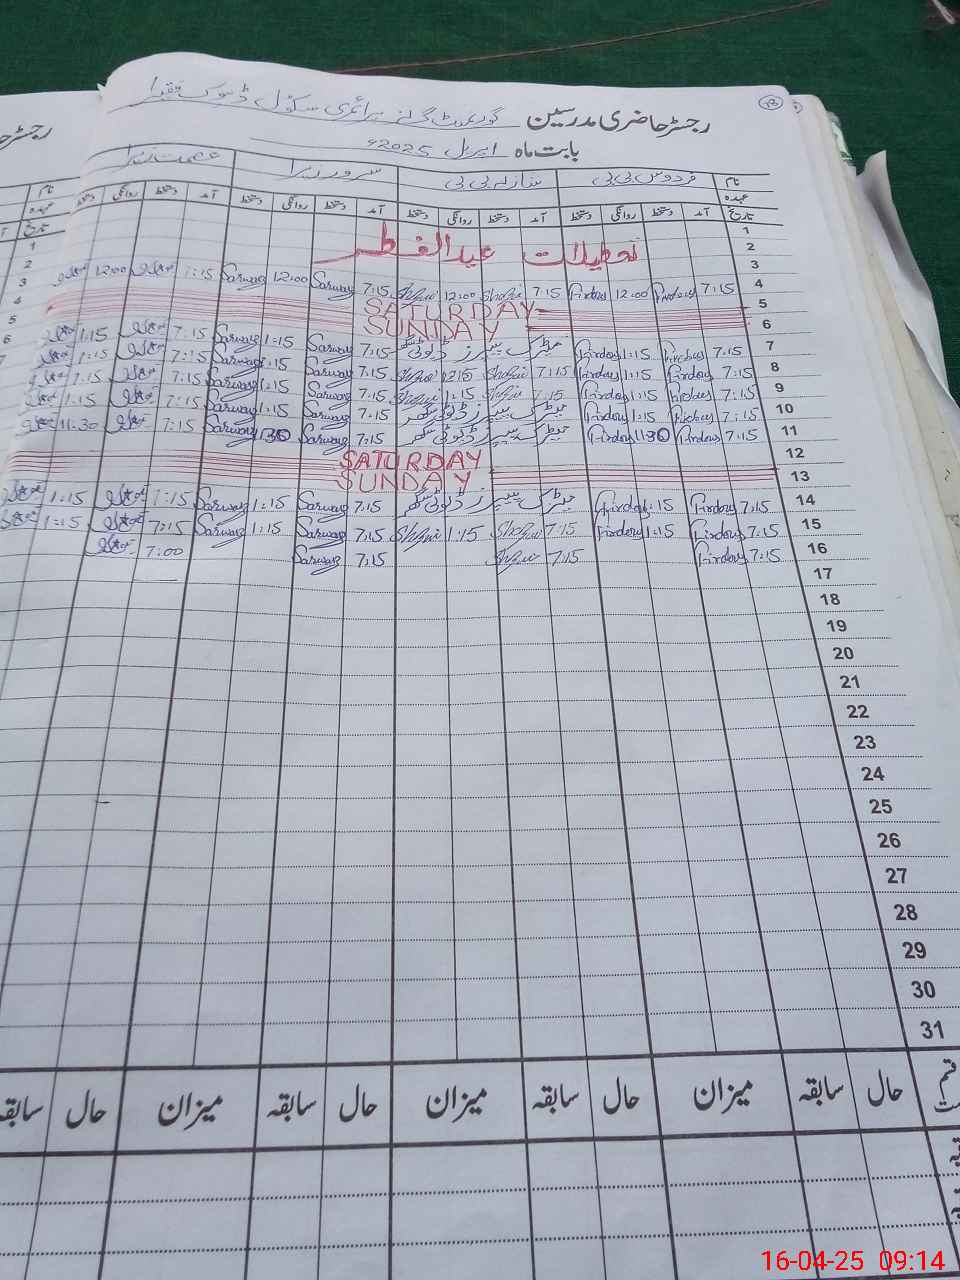 رجسٹر حاضری مدرسین گورنمنٹ گرلز پرائمری سکول ڈہوک فقیرا
بابت ماہ اپریل 2025ء
نام فردوس بی بی شازلہ بی بی سرور زہرا عصمت زہرا
عہدہ
تاریخ آمد دستخط روانگی دستخط آمد دستخط روانگی دستخط آمد دستخط روانگی دستخط آمد دستخط روانگی دستخط
1
2 تعطیلات عیدالفطر
3
4 7:15 Firdous 12:00 Firdous 7:15 12:00 7:15 Sarwar 12:00 Sarwar 7:15 12:00
5 SATURDAY
6 SUNDAY
7 7:15 Firdous 1:15 Firdous میٹرک پیپرز ڈیوٹی 7:15 Sarwar 1:15 Sarwar 7:15 1:15
8 7:15 Firdous 1:15 Firdous 7:15 7:15 Sarwar 1:15 Sarwar 7:15 1:15
9 7:15 Firdous 1:15 Firdous 7:15 1:15 7:15 Sarwar 1:15 Sarwar 7:15
10 7:15 Firdous 1:15 Firdous میٹرک پیپرز ڈیوٹی 7:15 Sarwar 1:15 Sarwar 7:15 1:15
11 7:15 Firdous 11:30 Firdous میٹرک پیپرز ڈیوٹی 7:15 Sarwar Sarwar 7:15 11:30
12 SATURDAY
13 SUNDAY
14 7:15 Firdous 1:15 Firdous میٹرک پیپرز ڈیوٹی 7:15 Sarwar 1:15 Sarwar 7:15 1:15
15 7:15 Firdous 1:15 Firdous 7:15 1:15 7:15 Sarwar 1:15 Sarwar 7:15 1:15
16 7:15 Firdous 7:15 7:15 Sarwar 7:00
17
18
19
20
21
22
23
24
25
26
27
28
29
30
31
حال سابقہ میزان حال سابقہ میزان حال سابقہ میزان حال سابقہ
16-04-25 09:14